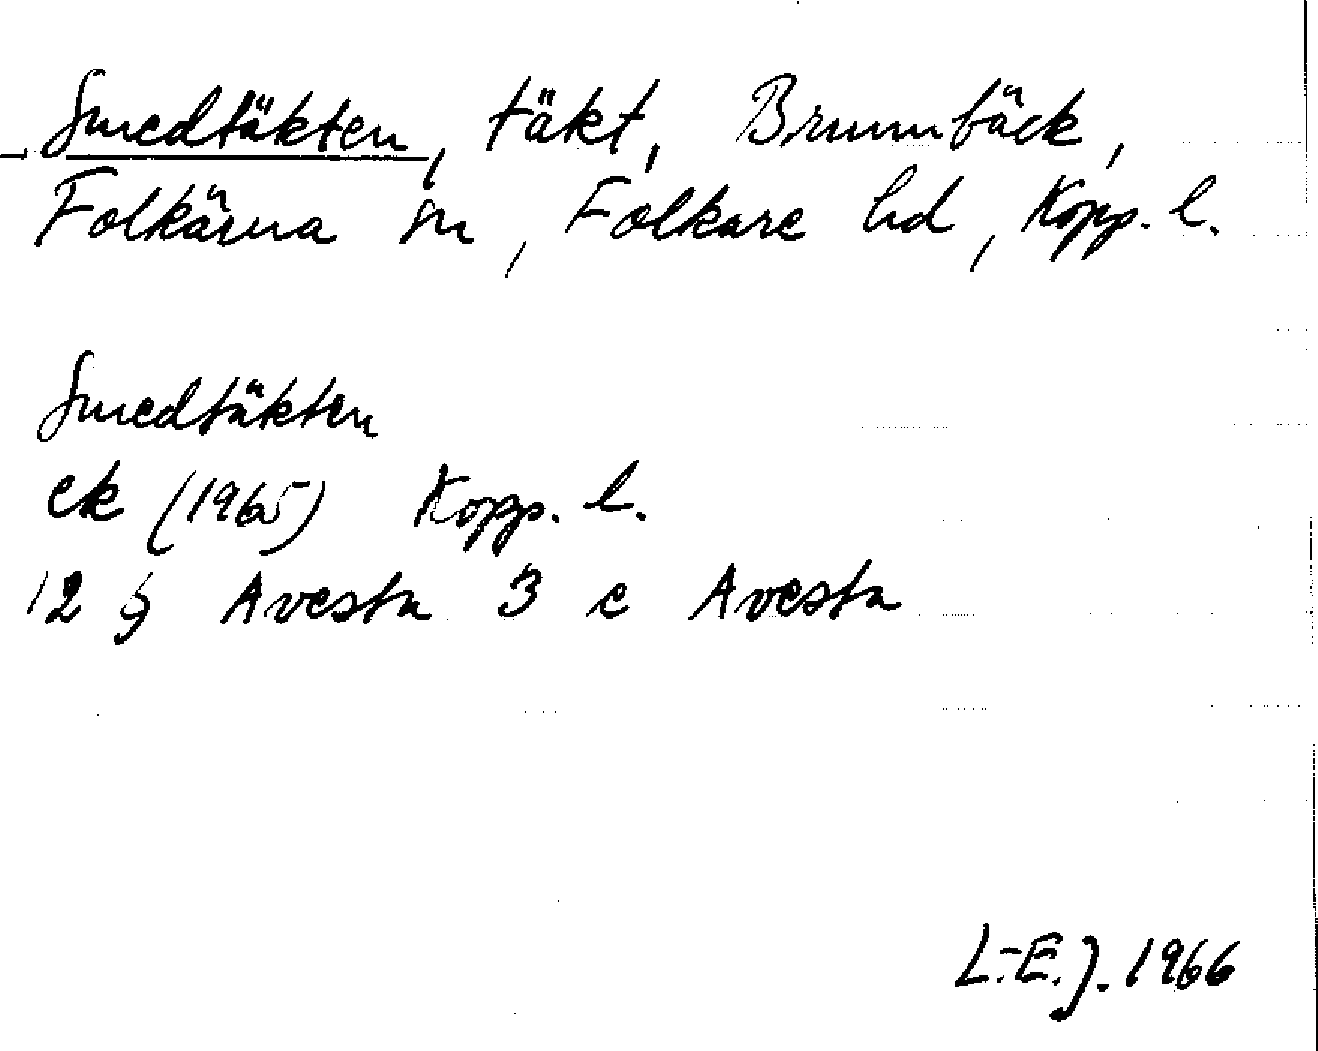 Smedtäkten, täkt, Brunnbäck,
Folkärna sn, Folkare hd, Kopp. l.
Smedtäkten
ek (1965) Kopp. l.
12 g Avesta 3 c Avesta
L.-E.J. 1966